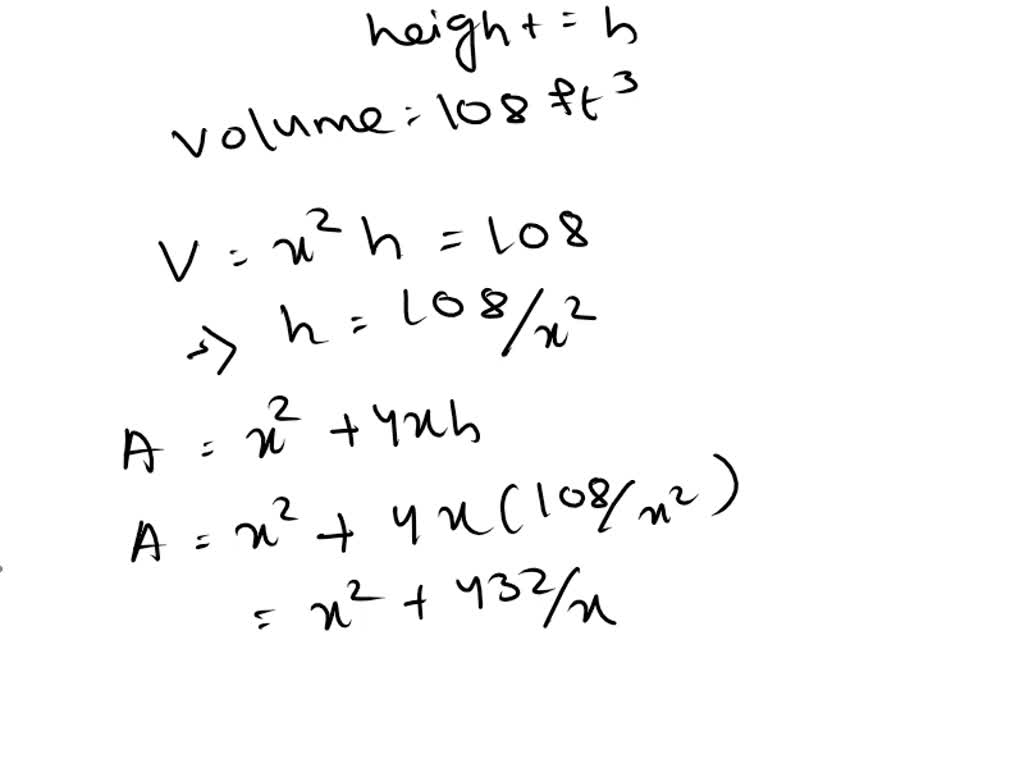 height = h
volume = 108 ft³
V = x² h = 108
=> h = 108/x²
A = x² + 4xh
A = x² + 4x(108/x²)
= x² + 432/x